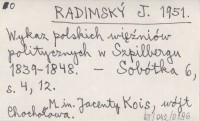 RADIMSKÝ J. 1951.
Wykaz polskich więźniów
politycznych w Szpilbergu
1839-1848. – Sobótka 6,
s. 4, 12.
M. in. Jacenty Kois, wójt
Chochołowa.